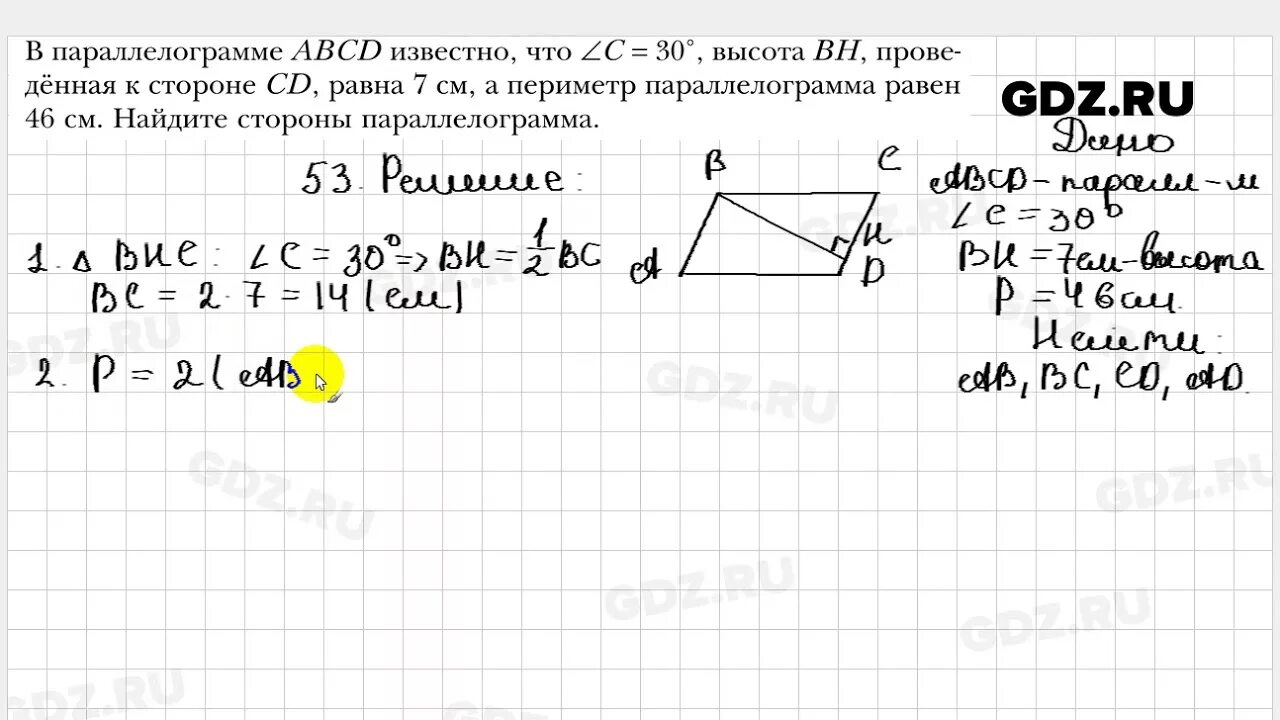 В параллелограмме ABCD известно, что ∠C = 30°, высота BH, прове-
дённая к стороне CD, равна 7 см, а периметр параллелограмма равен
46 см. Найдите стороны параллелограмма.
GDZ.RU
Дано
ABCD - паралл-м
∠C = 30°
BH = 7см - высота
P = 46см.
Найти:
AB, BC, CD, AD.
53. Решение:
B
C
H
A
D
1. △ BHC: ∠C = 30° => BH = 1/2 BC
BC = 2 · 7 = 14 (см)
2. P = 2 ( AB
GDZ.RU
GDZ.RU
GDZ.RU
GDZ.RU
GDZ.RU
GDZ.RU
GDZ.RU
GDZ.RU
GDZ.RU
GDZ.RU